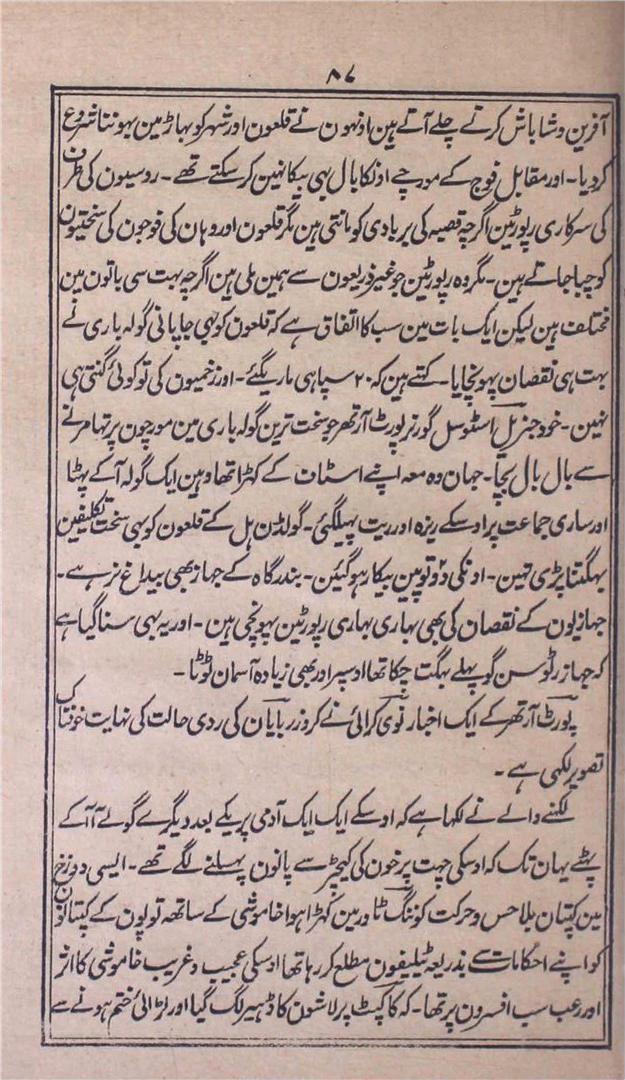 ۸۷
آفرین و شاباش کرتے چلے آتے ہین اونہون نے قلعون اور شہر کو بہاڑ مین بہوننا شروع
کردیا۔ اور مقابل فوج کے مورچے اونکا بال بہی بیکا نہین کرسکتے تھے۔ روسیون کی طرف
کی سرکاری رپورٹین اگرچہ قصبہ کی بربادی کو مانتی ہین مگر قلعون اور وہان کی فوجون کی سختیون
کو چبا جاتے ہین۔ مگر وہ رپورٹین جو غیر ذریعون سے ہمین ملی ہین اگرچہ بہت سی باتون مین
مختلف ہین لیکن ایک بات مین سب کا اتفاق ہے کہ قلعون کو بہی جاپانی گولہ باری نے
بہت ہی نقصان پہونچایا۔ کہتے ہین کہ ۲۰ سپاہی مارے گئے۔ اور زخمیون کی تو کوئی گنتی ہی
نہین۔ خود جنریل اسٹوسل گورنر پورٹ آرتھر جو سخت ترین گولہ باری مین مورچون پر تہا مرنے
سے بال بال بچا۔ جہان وہ معہ اپنے اسٹاف کے کھڑا تھا وہین ایک گولہ آکے پہٹا
اور ساری جماعت پر اوسکے ریزہ اور ریت پہیلگئی۔ گولڈن ہل کے قلعون کو بہی سخت تکلیفین
بہگتنا پڑی تہین۔ اونکی دو توپین بیکار ہو گئین۔ بندرگاہ کے جہاز بھی بیداغ نرہے۔
جہازیون کے نقصان کی بھی بہاری بہاری رپورٹین پہونچی ہین۔ اور یہ بہی سنا گیا ہے
کہ جہاز رٹوسن گو پہلے بہگت چکا تھا اوسپر اور بھی زیادہ آسمان ٹوٹا۔
پورٹ آرتھر کے ایک اخبار نوی کرائی نے کروزر بایان کی ردی حالت کی نہایت خوفناک
تصویر لکہی ہے۔
لکہنے والے نے لکہا ہے کہ اوسکے ایک ایک آدمی پر یکے بعد دیگرے گولے آآکے
پہٹے یہان تک کہ اوسکی چہت پر خون کی کیچڑ سے پانون پہسلنے لگے تھے۔ ایسی دوزخ
مین کپتان بلا حس و حرکت کوننگ ٹاور مین کھڑا ہوا خاموشی کے ساتھہ توپون کے کپتانون
کو اپنے احکامات سے بذریعہ ٹیلیفون مطلع کر رہا تھا اوسکی عجیب و غریب خاموشی کا اثر
اور رعب سب افسرون پر تھا۔ کہ کاکپٹ پر لاشون کا ڈہیر لگ گیا اور لڑائی ختم ہونے سے